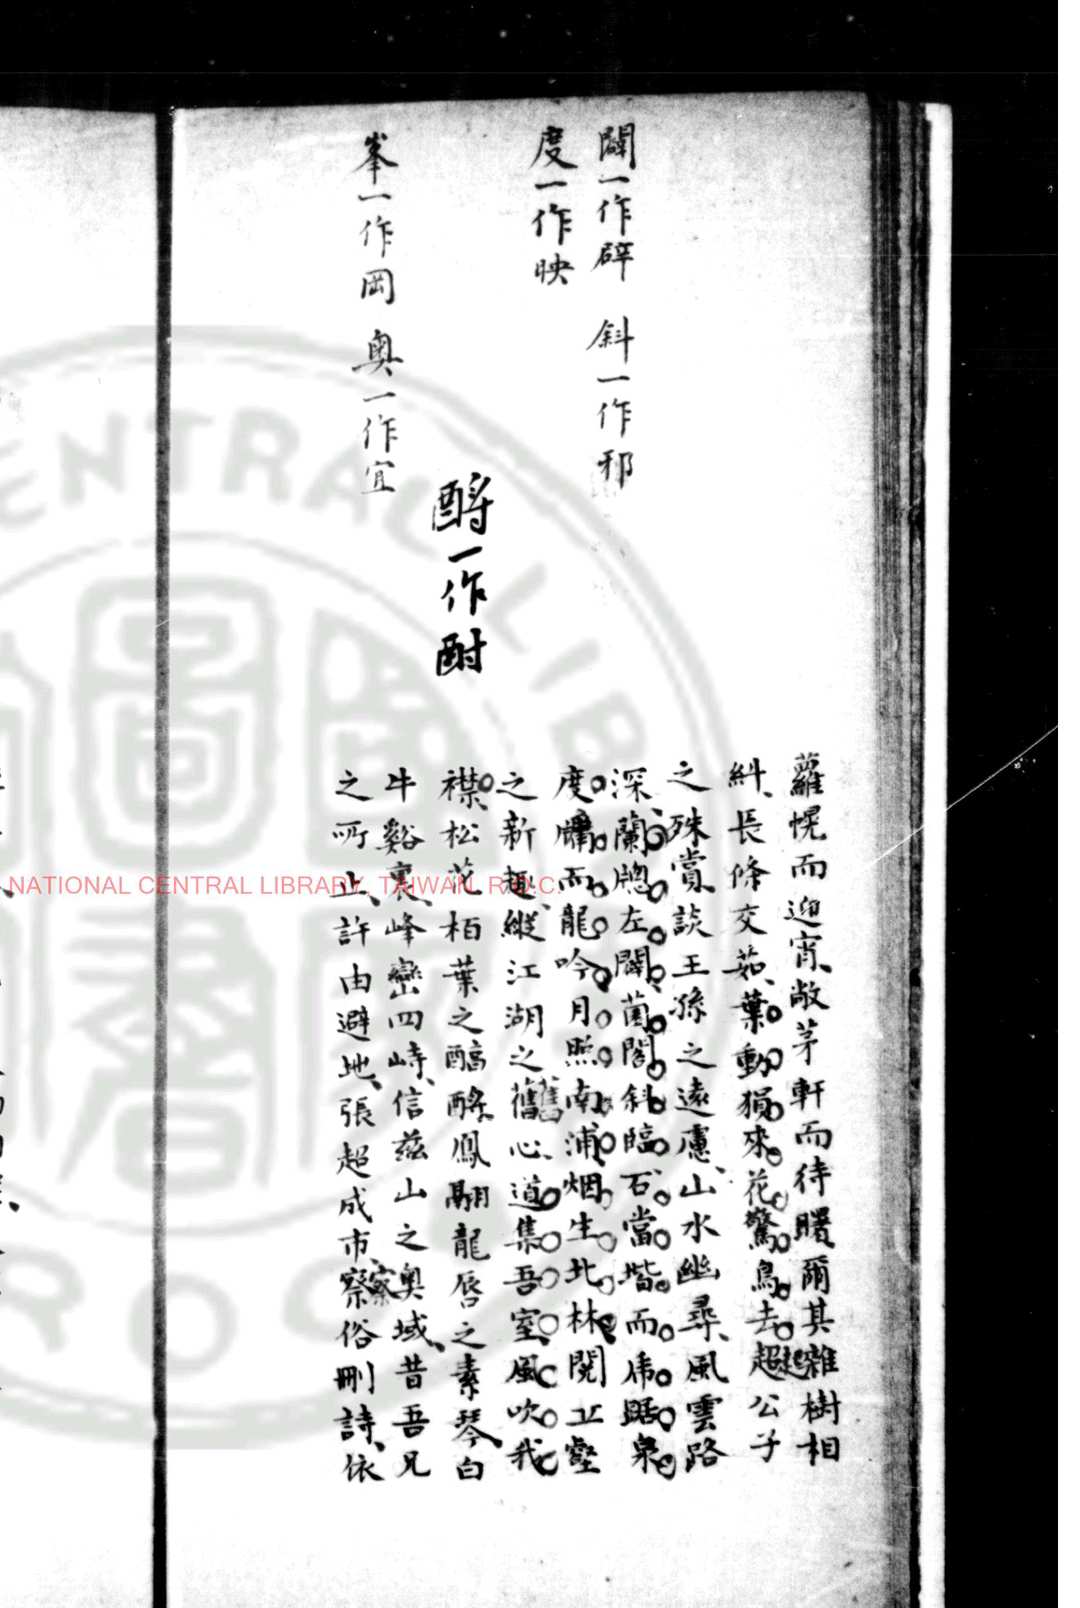 闢一作辟　斜一作邪
度一作映
酹一作酎
峯一作岡　奥一作宜
蘿幌而迎宵敞茅軒而待曙爾其雜樹相
糾長條交茹葉動猨來花驚鳥去超超公子
之殊賞談王孫之遠慮山水幽尋風雲路
深蘭牕左闢菌閣斜臨石當堦而虎踞泉
度牖而龍吟月照南浦烟生北林閱丘壑
之新趣縱江湖之舊舊心道集吾室風吹我
襟松花栢葉之醇酪鳳翮龍唇之素琴白
牛谿裏峰巒四峙信茲山之奥域昔吾兄
之所止許由避地張超成市察察俗刪詩依
NATIONAL CENTRAL LIBRARY, TAIWAN, R.O.C.